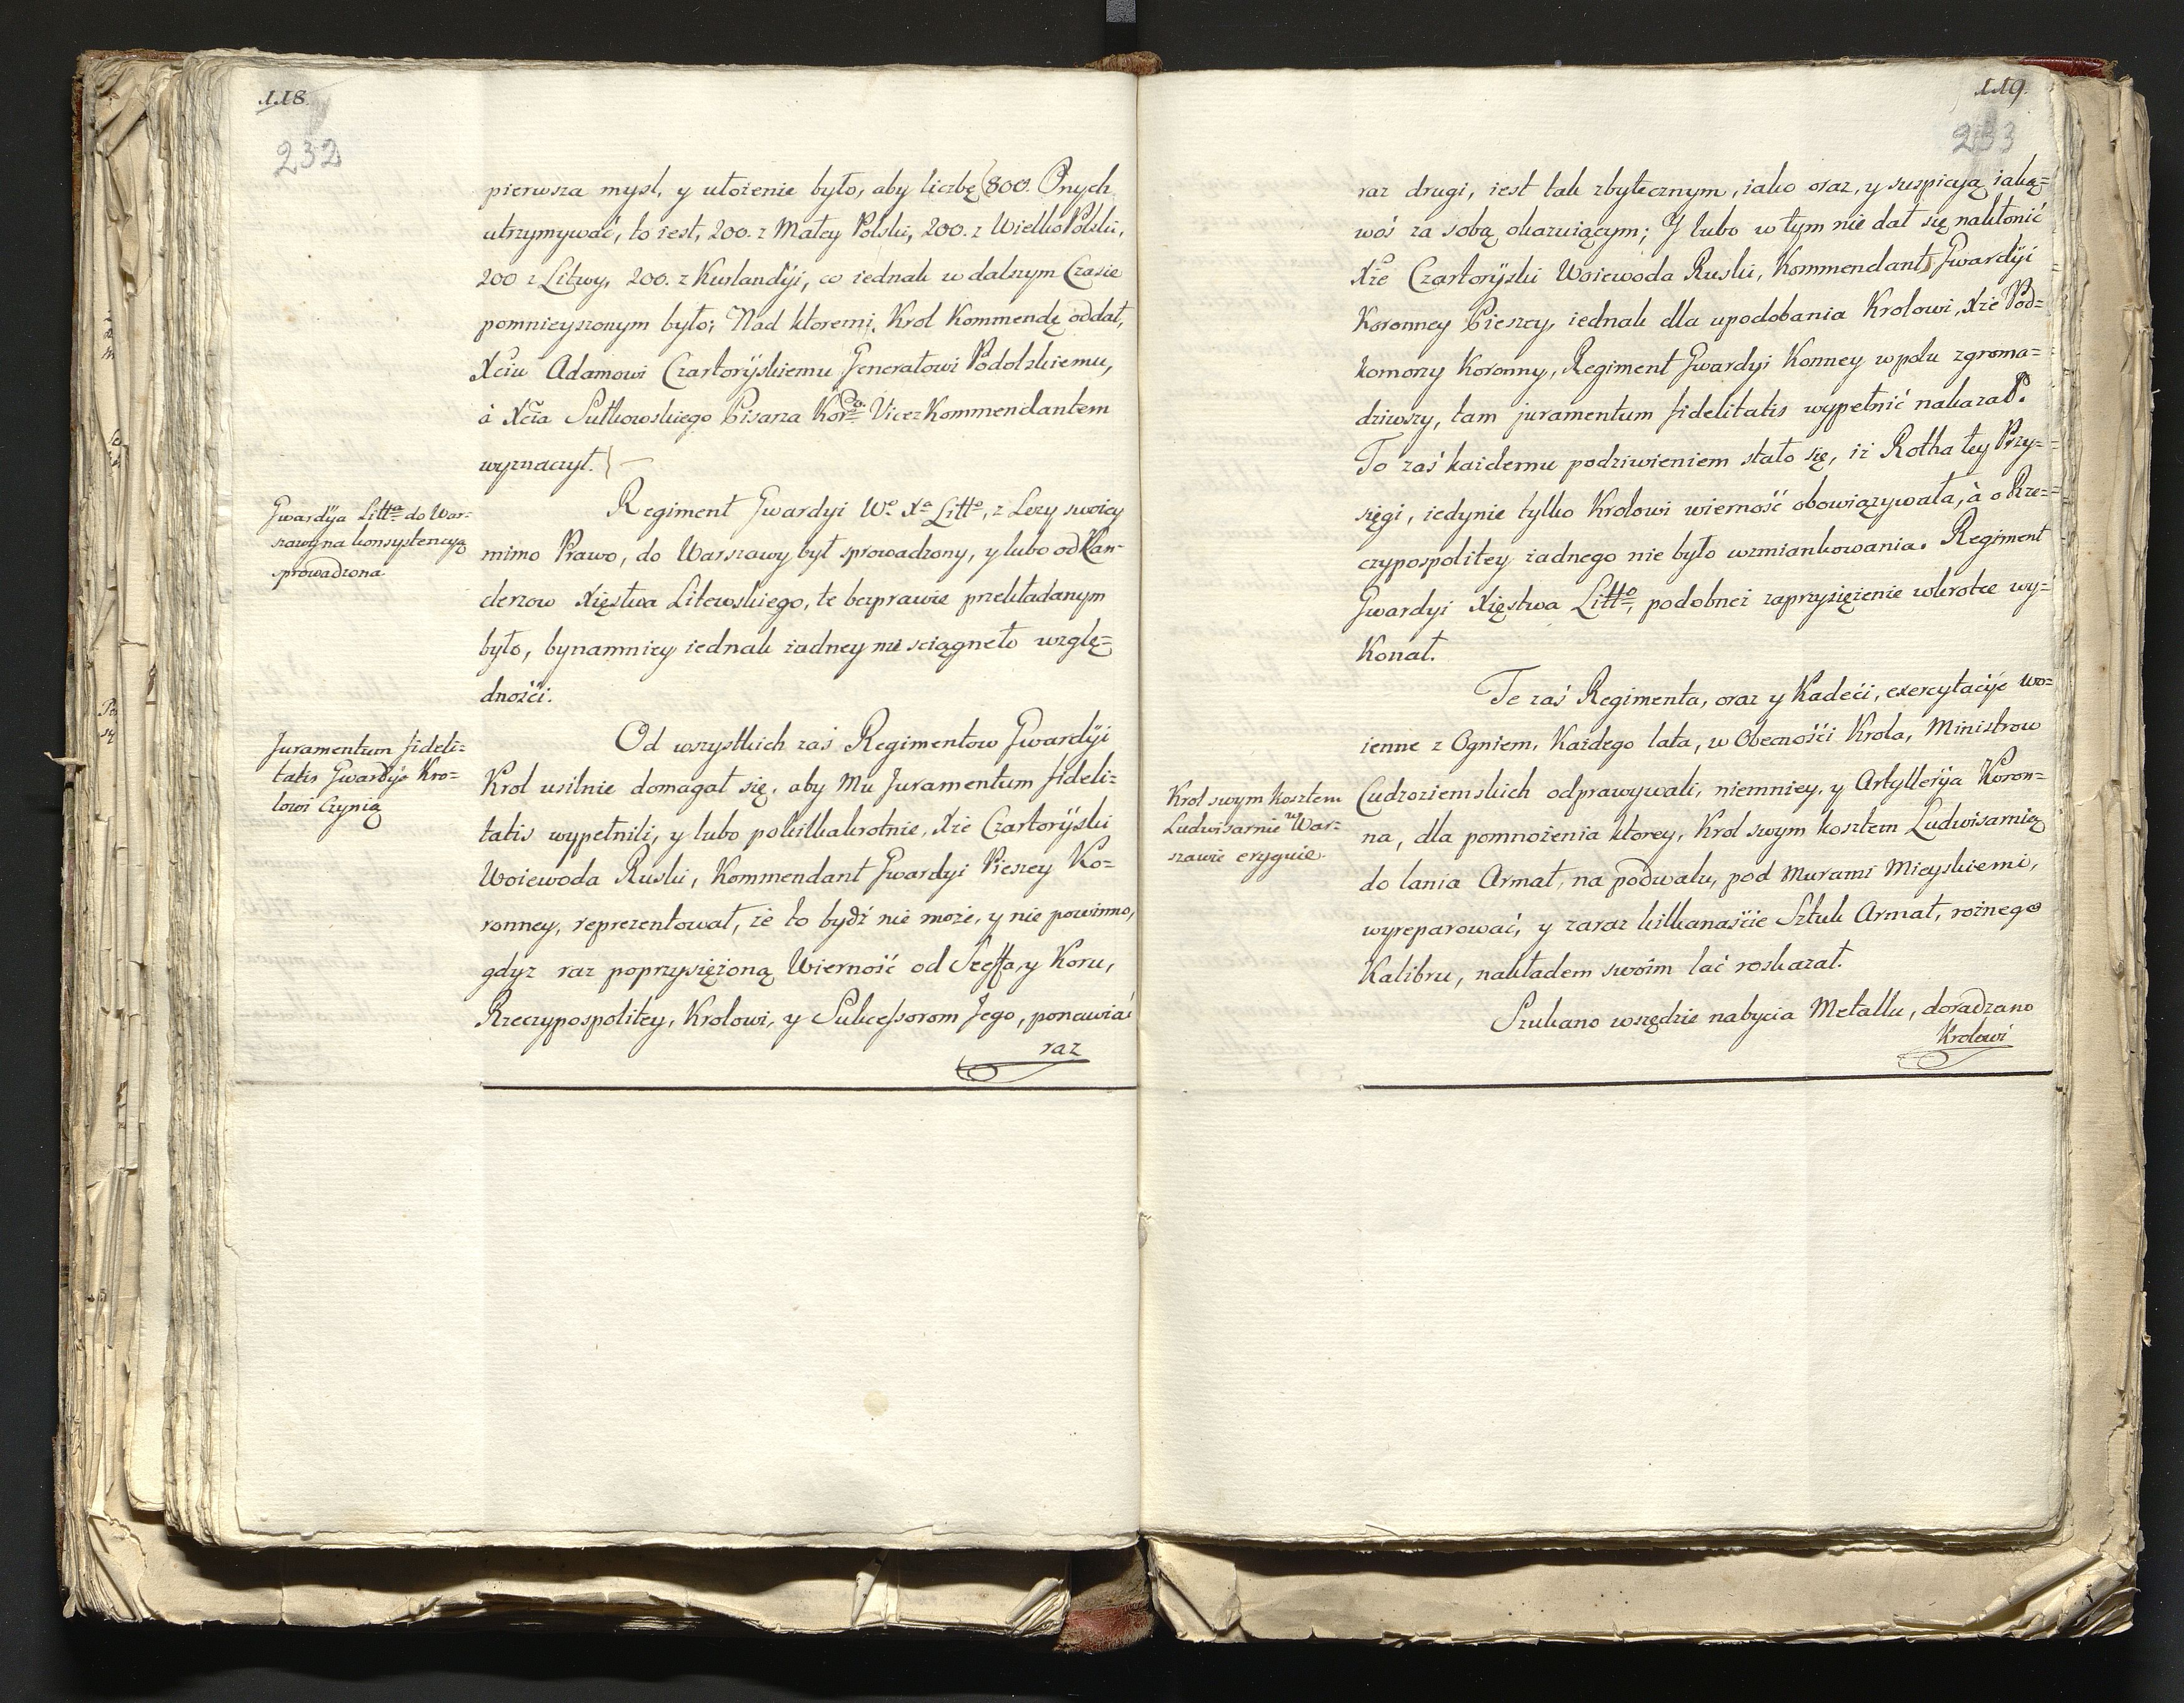 118.
232
pierwsza mysl, y ułożenie było, aby liczbę (800. Onych
utrzymywać, to iest, 200. z Małey Polski, 200. z WielkoPolski,
200 z Litwy, 200. z Kurlandÿi, co iednak w dalszym Czasie
pomnieyszonym było; Nad ktoremi, Krol Kommendę oddał,
Xciu Adamowi Czartorÿskiemu Generałowi Podolskiemu,
à Xcia Sułkowskiego Pisarza Kor. Vicez Kommendantem
wyznaczył.)
Gwardÿa Litta do War-
szawy na konsystencyą
sprowadzona.
Regiment Gwardyi Wo Xa Litto, z Leży swoiey
mimo Prawo, do Warszawy był sprowadzony, y lubo od Kan-
clerzow Xięstwa Litewskiego, te bezprawie przekładanym
było, bynamniey iednak żadney nie sciągneło wzglę=
dnośći.
Juramentum fideli=
tatis Gwardye Kro=
lowi Czynią
Od wszystkich zaś Regimentow Gwardÿi
Krol usilnie domagał się, aby Mu Juramentum fideli=
tatis wypełnili; y lubo pokilkakrotnie, Xże Czartorÿski
Woiewoda Ruski, Kommendant Gwardyi Pieszey Ko=
ronney, reprezentował, że to bydź nie może, y nie powinno,
gdyz raz poprzysiężoną Wierność od Szeffa, y Koru,
Rzeczypospolitey, Krolowi, y Sukcessorom Jego, ponawiać
raz
119.
233
raz drugi, iest tak zbytecznym, iako oraz, y suspicyą iaką=
woś za sobą okazuiącym; Y lubo w tym nie dał się nakłonić
Xże Czartorÿski Woiewoda Ruski, Kommendant Gwardÿi
Koronney Pieszey, iednak dla upodobania Krolowi, Xże Pod=
komorzy Koronny, Regiment Gwardyi Konney w polu zgroma=
dziwszy, tam juramentum fidelitatis wypełnić nakazał.
To zaś każdemu podziwieniem stało się, iż Rotha tey Przy=
sięgi, iedynie tylko Krolowi wierność obowiązywała, à o Rze=
czypospolitey żadnego nie było wzmiankowania. Regiment
Gwardyi Xięstwa Litto, podobneż zaprzysiężenie wkrotce wy=
Konał.
Te zaś Regimenta, oraz y Kadeći, exercytacÿe wo=
ienne z Ogniem, Każdego lata, w Obecnośći Krola, Ministrow
Cudzoziemskich odprawywali, niemniey, y Artyllerÿa Koron=
Krol swym kosztem
Ludwisarnie w War=
szawie eryguie.
na, dla pomnożenia ktorey, Krol swym kosztem Ludwisarnią
do lania Armat, na podwalu, pod Murami Mieyskiemi,
wyreparować, y zaraz kilkanaśćie Sztuk Armat, rożnego
Kalibru, nakładem swoim lać roskazał.
Szukano wszędzie nabycia Metallu, doradzano
Krolowi